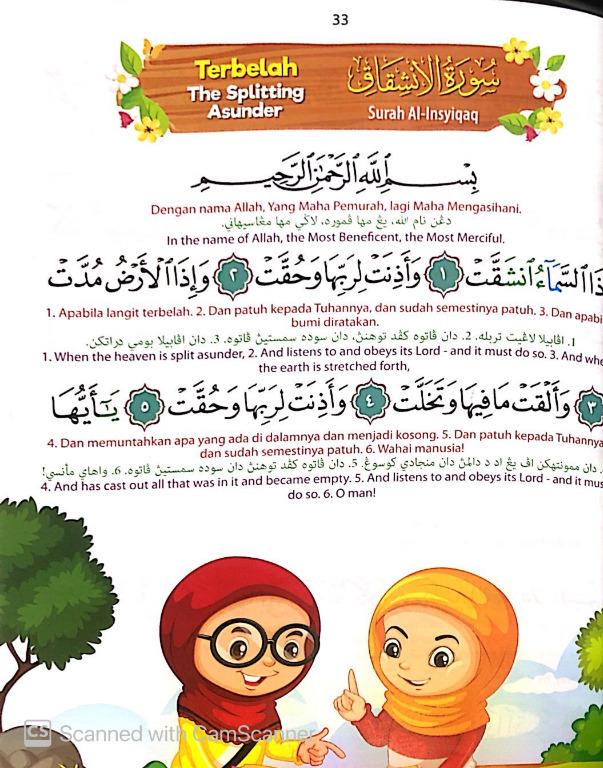 33
Terbelah
The Splitting
Asunder
سُورَةُ الْاِنْشِقَاقِ
Surah Al-Insyiqaq
بِسْمِ اللَّهِ الرَّحْمَٰنِ الرَّحِيمِ
Dengan nama Allah, Yang Maha Pemurah, lagi Maha Mengasihani.
دڠن نام الله، يڠ مها ڤموره، لاڬي مها مڠاسيهاني.
In the name of Allah, the Most Beneficent, the Most Merciful.
ذَا السَّمَآءُ انشَقَّتْ ١ وَأَذِنَتْ لِرَبِّهَا وَحُقَّتْ ٢ وَإِذَا الْأَرْضُ مُدَّتْ
1. Apabila langit terbelah. 2. Dan patuh kepada Tuhannya, dan sudah semestinya patuh. 3. Dan apabi
bumi diratakan.
1. اڤابيلا لاڠيت تربله. 2. دان ڤاتوه كڤد توهنڽ، دان سوده سمستيڽ ڤاتوه. 3. دان اڤابيلا بومي دراتكن.
1. When the heaven is split asunder, 2. And listens to and obeys its Lord - and it must do so. 3. And whe
the earth is stretched forth,
٣ وَأَلْقَتْ مَا فِيهَا وَتَخَلَّتْ ٤ وَأَذِنَتْ لِرَبِّهَا وَحُقَّتْ ٥ يَٰٓأَيُّهَا
4. Dan memuntahkan apa yang ada di dalamnya dan menjadi kosong. 5. Dan patuh kepada Tuhannya
dan sudah semestinya patuh. 6. Wahai manusia!
. دان ممونتهكن اڤ يڠ اد د دالمڽ دان منجادي كوسوڠ. 5. دان ڤاتوه كڤد توهنڽ دان سوده سمستيڽ ڤاتوه. 6. واهاي مأنسي!
4. And has cast out all that was in it and became empty. 5. And listens to and obeys its Lord - and it mus
do so. 6. O man!
CS Scanned with CamScanner